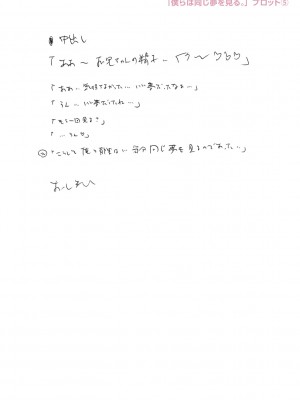 「僕らは同じ夢を見る。」プロット
中出し
「ああ〜お兄ちゃんの精子…
「ああ…気持よかった…いい夢だったなぁ…」
「うん…いい夢だったね…」
「もう一回見るさ」
「…うん
「こうして俺と は 同じ夢を見るのであった…」
おしまい